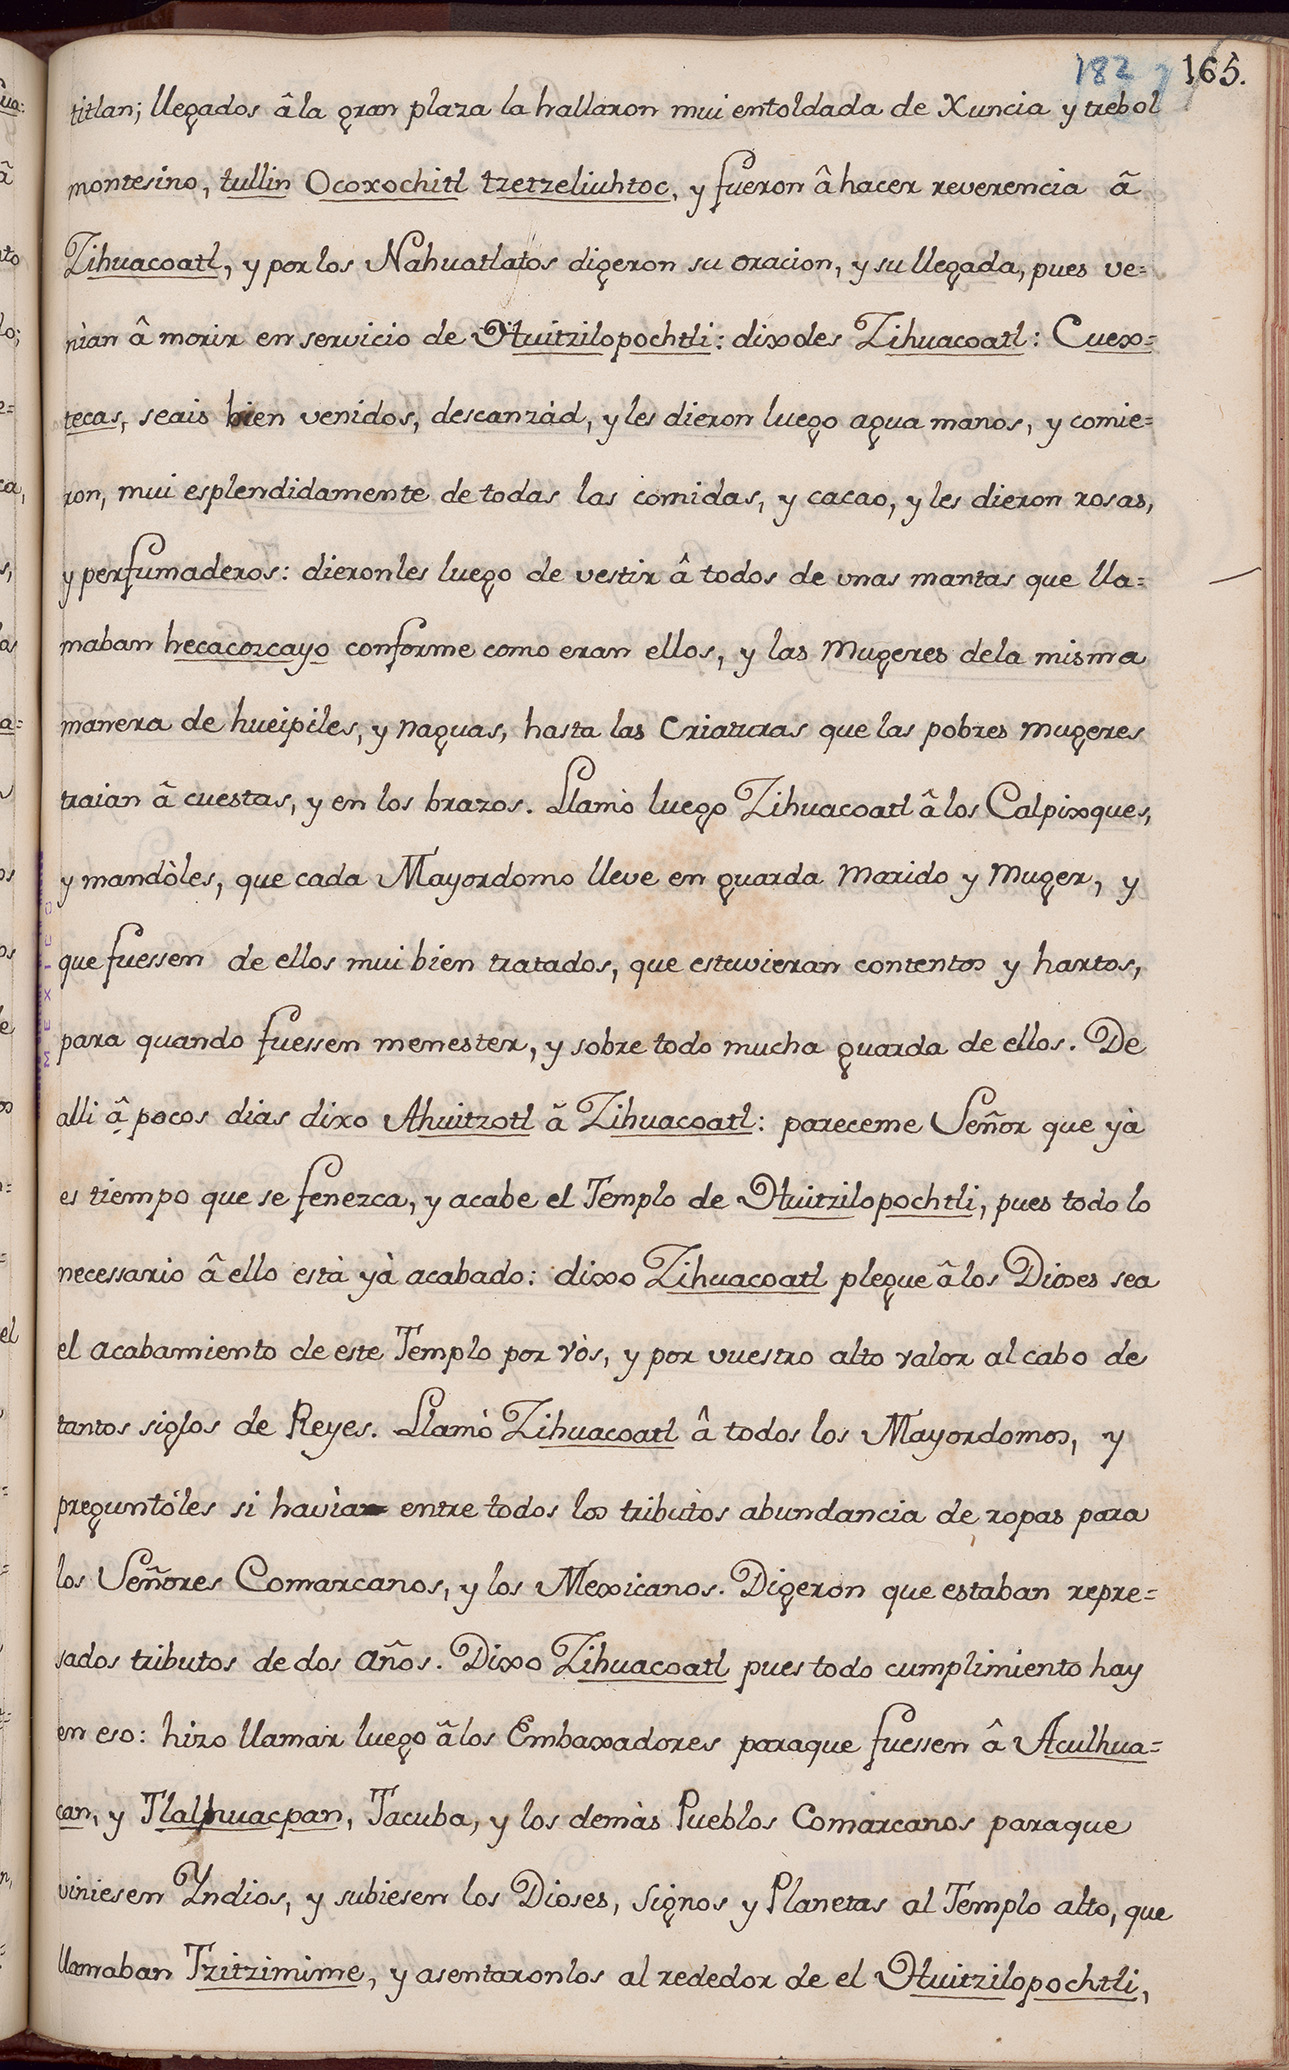 182 165.
titlan; llegados â la gran plaza la hallaron mui entoldada de Xuncia y trebol
montesino, tullin Ocoxochitl tzetzeliuhtoc, y fueron â hacer reverencia ã
Zihuacoatl, y por los Nahuatlatos digeron su oracion, y su llegada, pues ve=
nìan â morir en servicio de Huitzilopochtli: dixoles Zihuacoatl: Cuex=
tecas, seais bien venidos, descanzàd, y les dieron luego agua manos, y comie=
ron, mui esplendidamente de todas las comidas, y cacao, y les dieron rosas,
y perfumaderos: dieronles luego de vestir â todos de vnas mantas que lla=
maban hecacozcayo conforme como eran ellos, y las Mugeres dela misma
manera de hueipiles, y naguas, hasta las Criaturas que las pobres mugeres
traian â cuestas, y en los brazos. Llamò luego Zihuacoatl â los Calpixques,
y mandòles, que cada Mayordomo lleve en guarda Marido y Muger, y
que fuessen de ellos mui bien tratados, que estuvieran contentos y hartos,
para quando fuessen menester, y sobre todo mucha guarda de ellos. De
alli â pocos dias dixo Ahuitzotl ã Zihuacoatl: pareceme Señor que yà
es tiempo que se fenezca, y acabe el Templo de Huitzilopochtli, pues todo lo
necessario â ello està yà acabado: dixo Zihuacoatl plegue â los Dioses sea
el acabamiento de este Templo por vòs, y por vuestro alto valor al cabo de
tantos siglos de Reyes. Llamò Zihuacoatl â todos los Mayordomos, y
preguntòles si havìa entre todos los tributos abundancia de ropas para
los Señores Comarcanos, y los Mexicanos. Digeron que estaban repre=
sados tributos de dos años. Dixo Zihuacoatl pues todo cumplimiento hay
en eso: hizo llamar luego â los Embaxadores paraque fuessen â Aculhua=
can, y Tlalhuacpan, Tacuba, y los demàs Pueblos Comarcanos paraque
viniesen Yndios, y subiesen los Dioses, Signos y Planetas al Templo alto, que
llamaban Tzitzimime, y asentaronlos al rededor de el Huitzilopochtli,
MEXICO